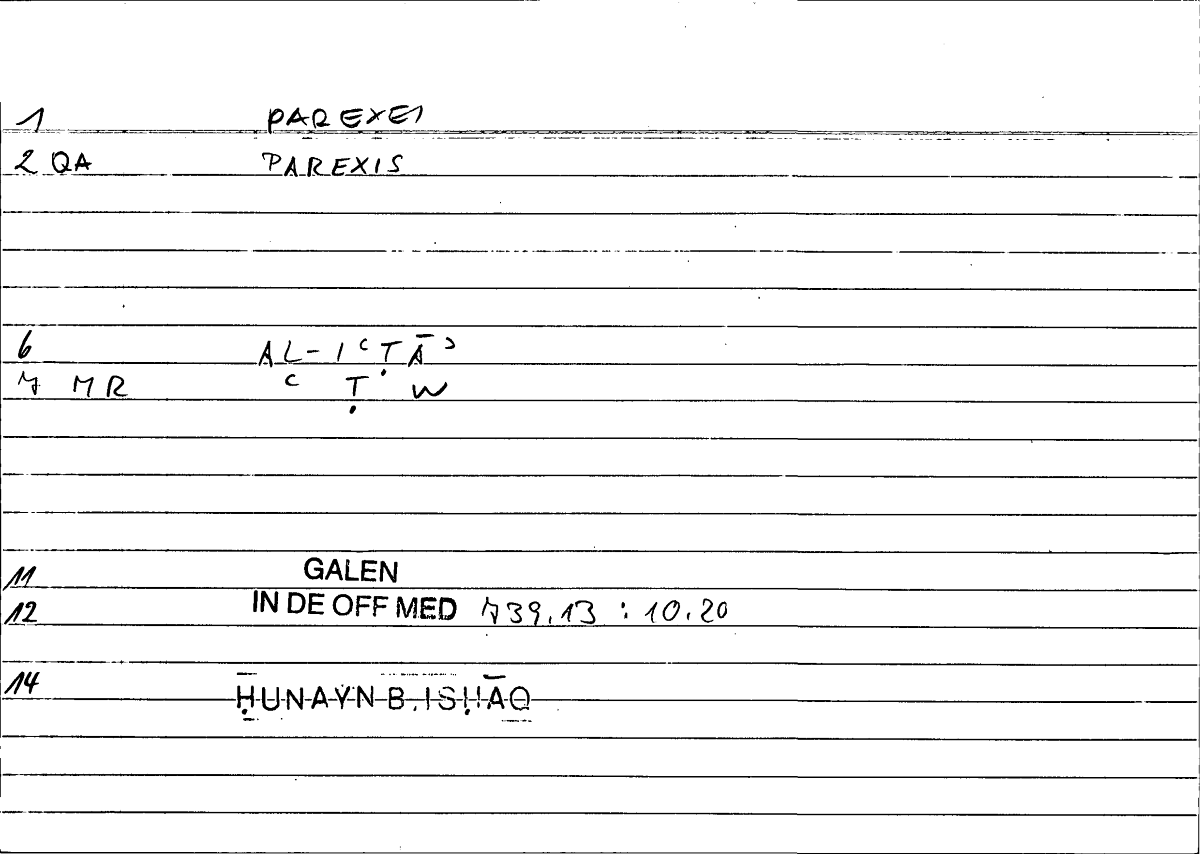 1 PAREXEI
2 QA PAREXIS
6 AL-IʿṬĀʾ
7 MR ʿ Ṭ W
11 GALEN
12 IN DE OFF MED 739.13 : 10.20
14 ḤUNAYN B. ISḤĀQ